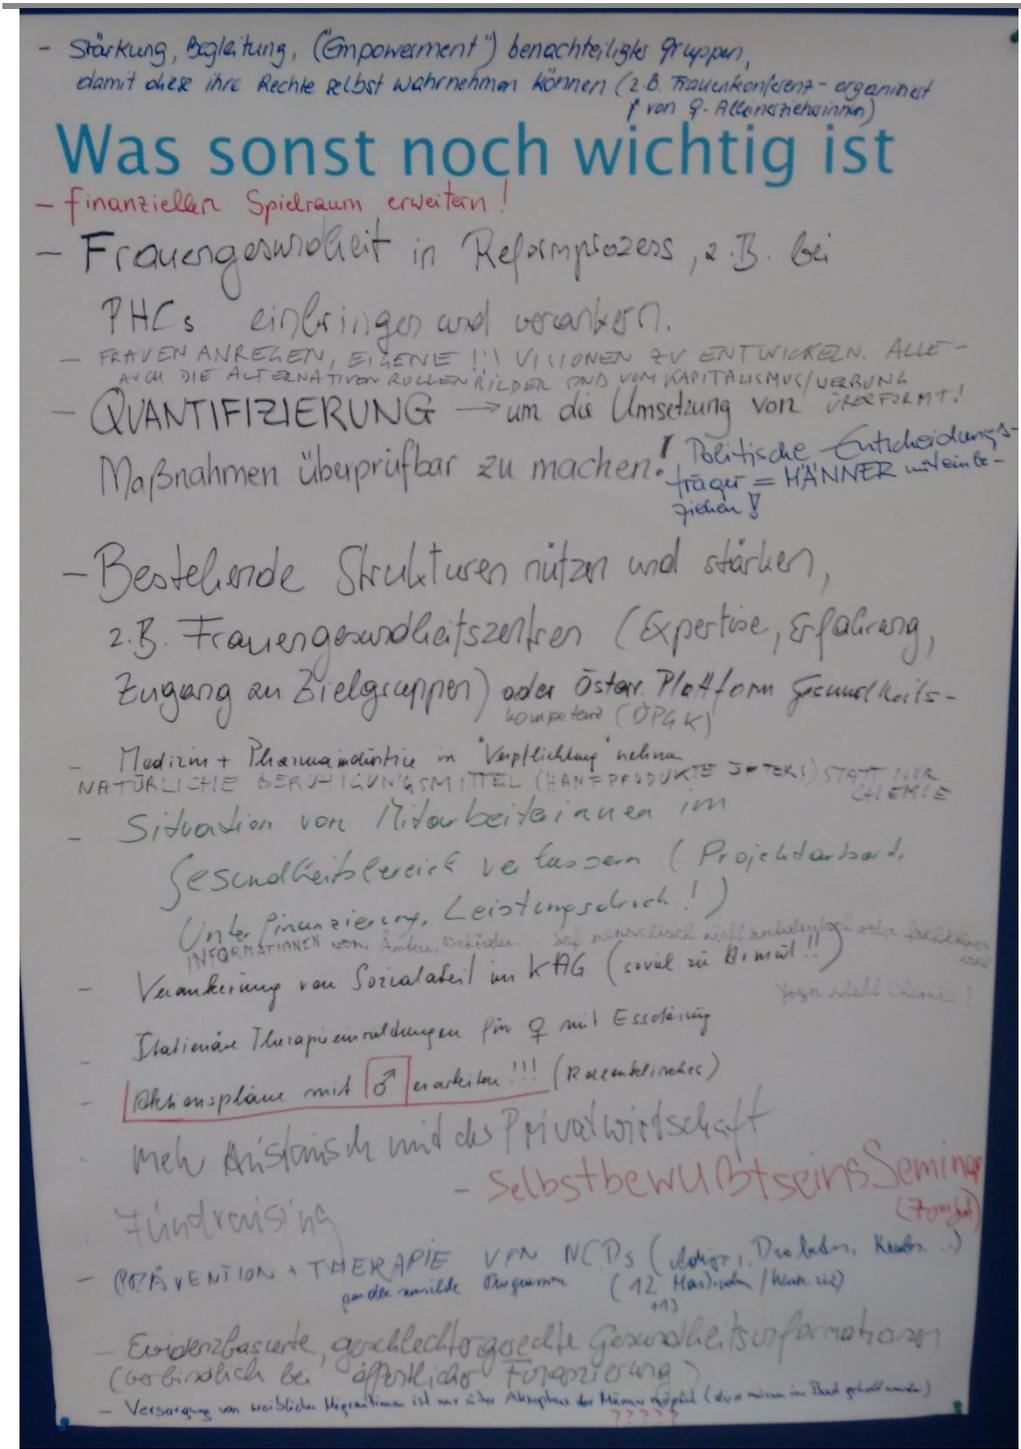 - Stärkung, Begleitung, ("Empowerment") benachteiligter Gruppen,
damit diese ihre Rechte selbst wahrnehmen können (z.B. Frauenkonferenz - organisiert
von ♀- Alleinerzieherinnen)
Was sonst noch wichtig ist
- finanziellen Spielraum erweitern!
- Frauengesundheit in Reformprozess, z.B. bei
PHCs einbringen und verankern.
- FRAUEN ANREGEN, EIGENE !!! VISIONEN ZU ENTWICKELN. ALLE -
AUCH DIE ALTERNATIVEN ROLLENBILDER SIND VOM KAPITALISMUS/WERBUNG
ÜBERFORMT!
- QUANTIFIZIERUNG → um die Umsetzung von
Maßnahmen überprüfbar zu machen!
Politische Entscheidungs-
träger = MÄNNER miteinbe-
ziehen!
- Bestehende Strukturen nützen und stärken,
z.B. Frauengesundheitszentren (Expertise, Erfahrung,
Zugang zu Zielgruppen) oder Österr. Plattform Gesundheits-
kompetenz (ÖPGK)
- Medizin + Pharmaindustrie in "Verpflichtung" nehmen
NATÜRLICHE BERUHIGUNGSMITTEL (HANFPRODUKTE STATT NUR
CHEMIE
- Situation von Mitarbeiterinnen im
Gesundheitsbereich verbessern (Projektarbeit,
Unterfinanzierung, Leistungsdruck!)
INFORMATIONEN von Ämtern, Behörden
- Verankerung von Sozialarbeit im KAG (soviel zu Armut!!)
Yoga statt Chemie!
- Stationäre Therapieeinrichtungen für ♀ mit Essstörung
- Aktionspläne mit ♂ erarbeiten!!!
- mehr Austausch mit der Privatwirtschaft
- Selbstbewußtseins Seminar
Fundraising
- PRÄVENTION + THERAPIE VON NCDs (Adipos., Diabetes, Krebs ...)
gendersensible Programme (12
+13
- Evidenzbasierte, geschlechtergerechte Gesundheitsinformationen
(verbindlich bei öffentlicher Finanzierung)
- Versorgung von weiblichen Migrantinnen ist nur über Akzeptanz der Männer möglich (diese müssen ins Boot geholt werden)
?????